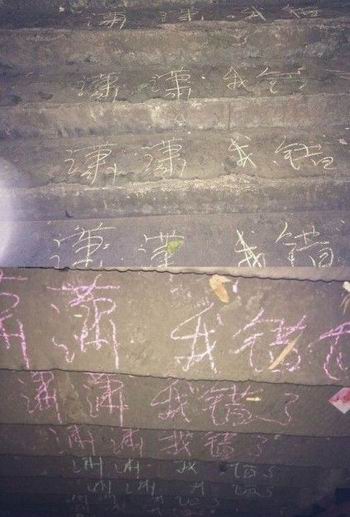 潇 潇 我 错
潇 潇 我 错
潇 潇 我 错
潇 潇 我 错
潇 潇 我 错
潇 潇 我 错 了
潇 潇 我 错 了